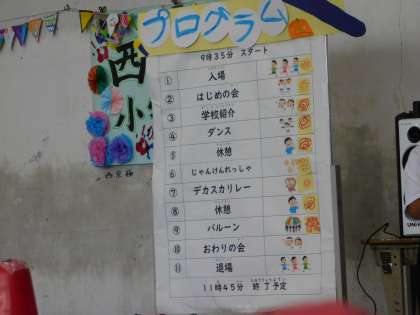 プログラム
9時35分 スタート
① 入場
② はじめの会
③ 学校紹介
④ ダンス
⑤ 休憩
⑥ じゃんけんれっしゃ
⑦ デカスカリレー
⑧ 休憩
⑨ バルーン
⑩ おわりの会
⑪ 退場
11時45分 終了予定
西
小